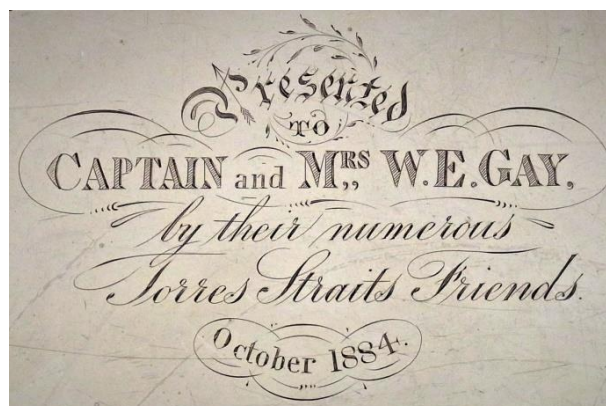 Presented
TO
CAPTAIN and MRS,, W.E.GAY,
by their numerous
Torres Straits Friends.
October 1884.